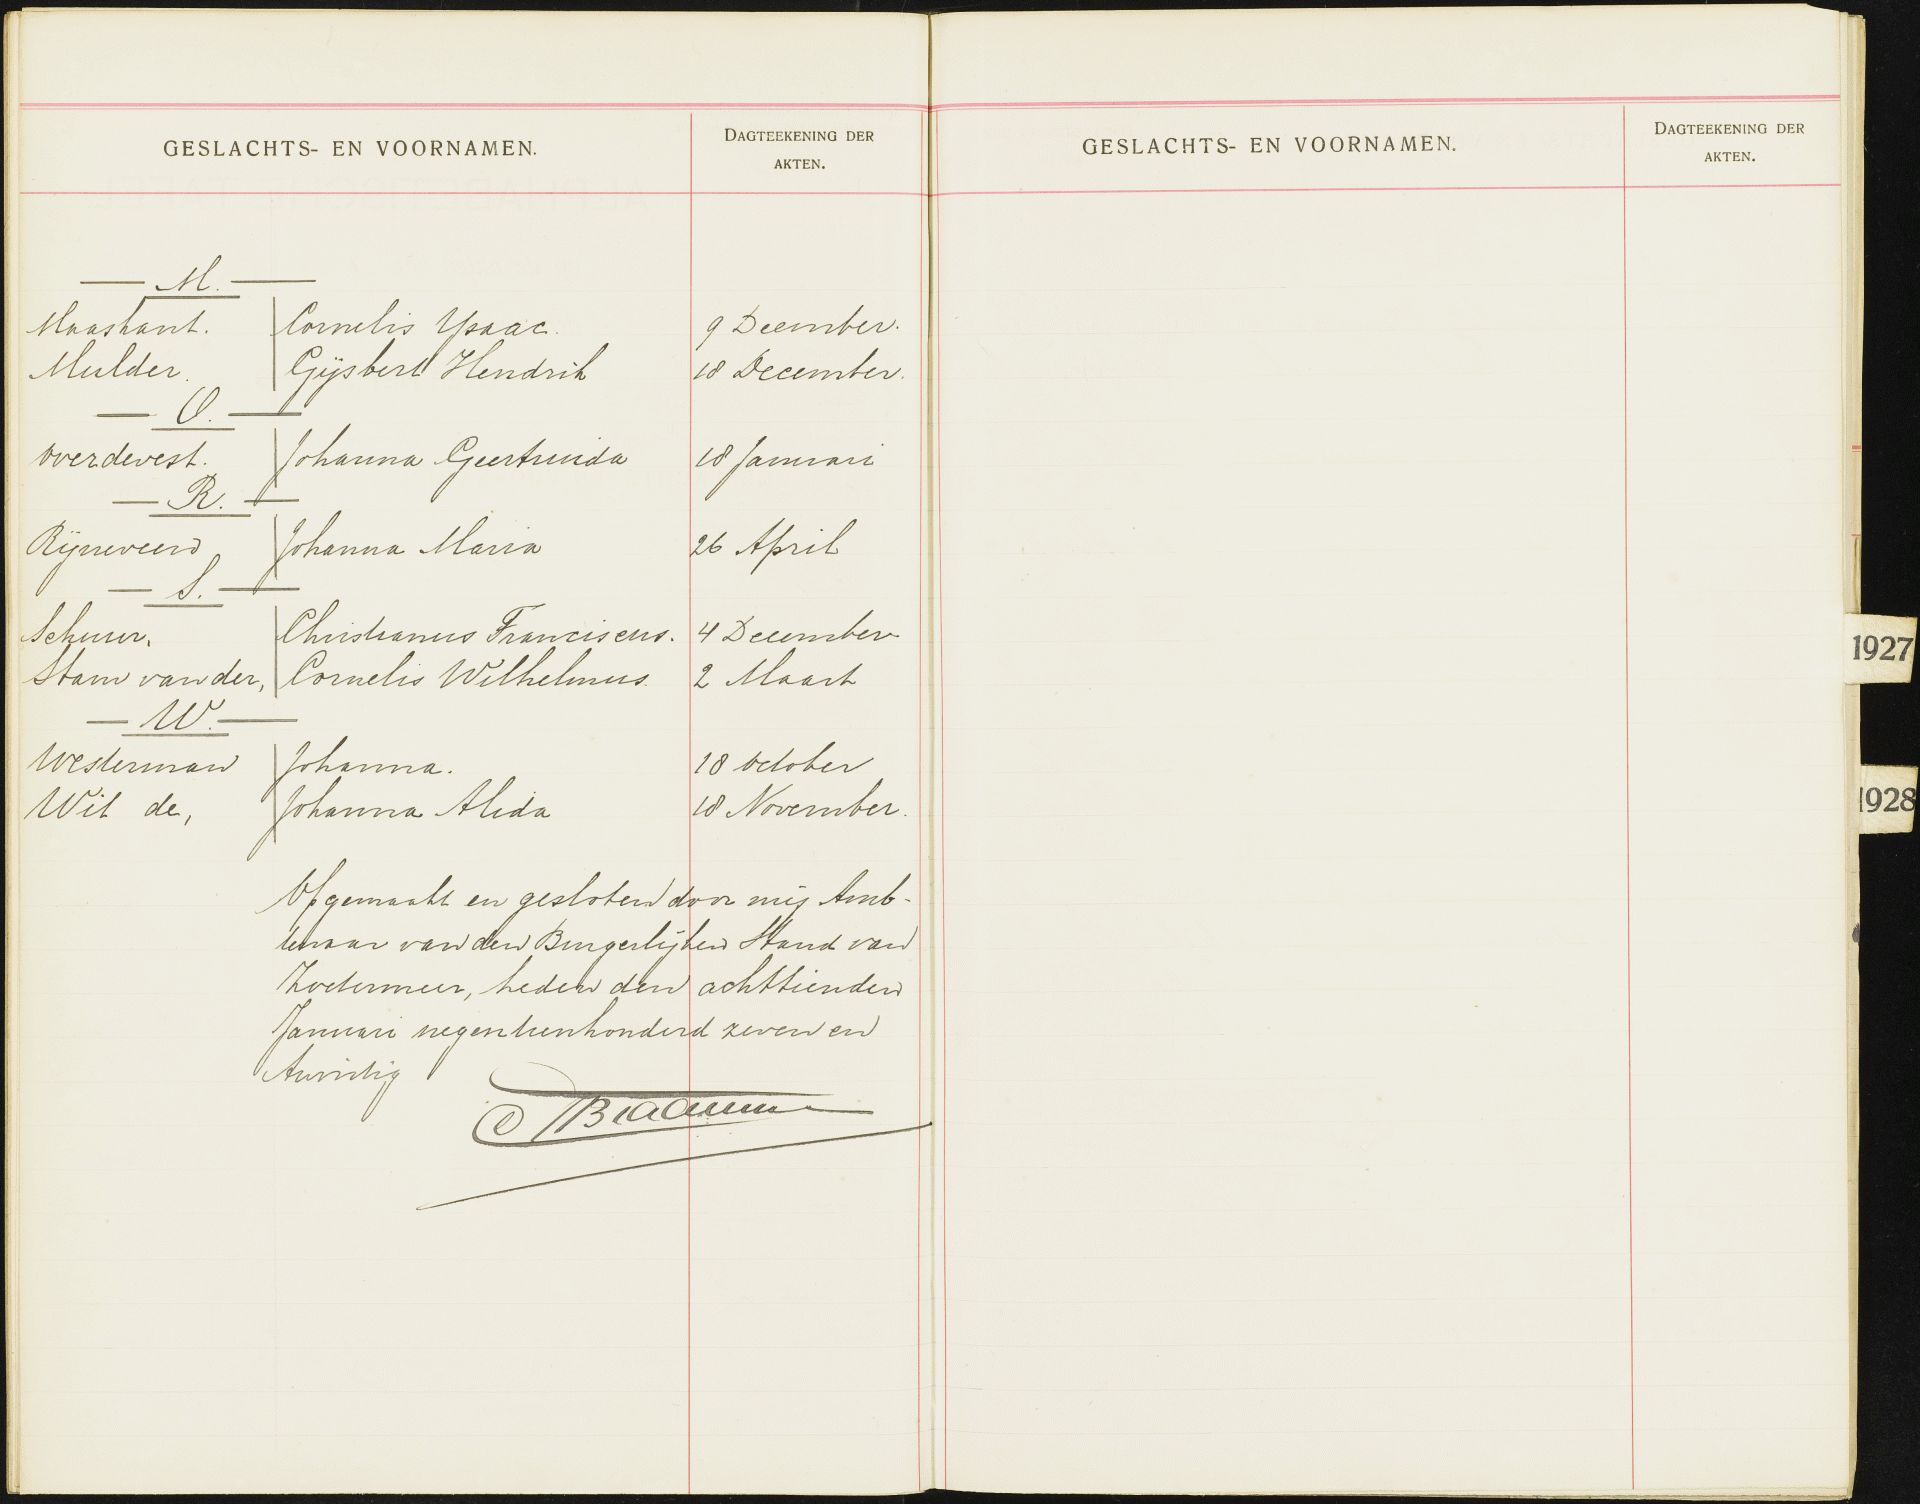 GESLACHTS- EN VOORNAMEN. DAGTEEKENING DER AKTEN.
— M. —
Maaskant. Cornelis Ysaac. 9 December.
Mulder. Gijsbert Hendrik 18 December.
— O. —
Overdevest. Johanna Geertruida 18 Januari
— R. —
Rijneveen Johanna Maria 26 April
— S. —
Schuur, Christianus Franciscus. 4 December
Stam van der, Cornelis Wilhelmus. 2 Maart
— W. —
Westerman Johanna. 18 October
Wit de, Johanna Alida 18 November.
Opgemaakt en gesloten door mij Amb-
tenaar van den Burgerlijken Stand van
Zoetermeer, heden den achttienden
Januari negentienhonderd zeven en
twintig
GESLACHTS- EN VOORNAMEN. DAGTEEKENING DER AKTEN.
1927
1928